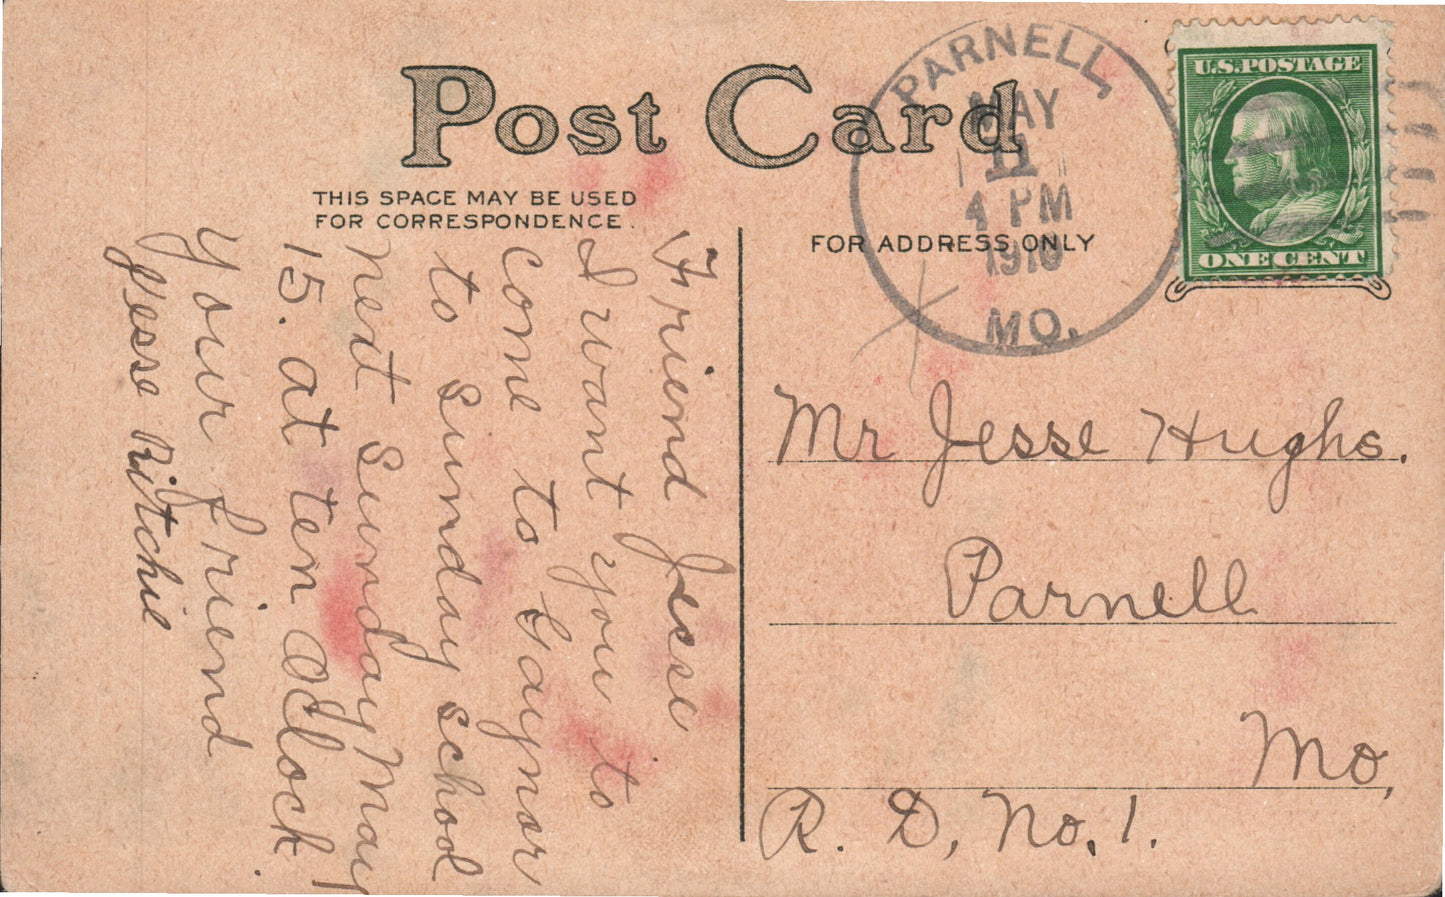 Post Card
THIS SPACE MAY BE USED
FOR CORRESPONDENCE.
FOR ADDRESS ONLY
PARNELL,
MAY
11
4 PM
1910
MO.
U.S. POSTAGE
ONE CENT
Friend Jesse
I want you to
come to Gaynor
to Sunday school
next Sunday May
15. at ten Oclock.
Your friend
Jesse Ritchie
Mr Jesse Hughs.
Parnell
Mo,
R. D, No, 1.